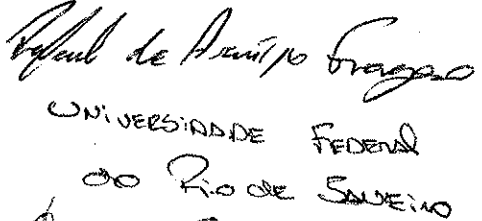 Rafael de Araújo Fragoso
UNIVERSIDADE FEDERAL
DO RIO DE JANEIRO